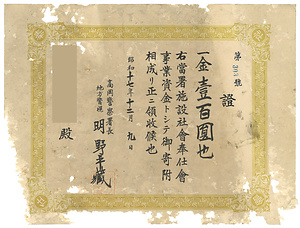 第 號
證
一金壹百圓也
右當署施設社會奉仕會
事業資金トシテ御寄附
相成リ正ニ領收候也
昭和十七年十二月九日
高岡警察署長
地方警視 明野平藏
殿